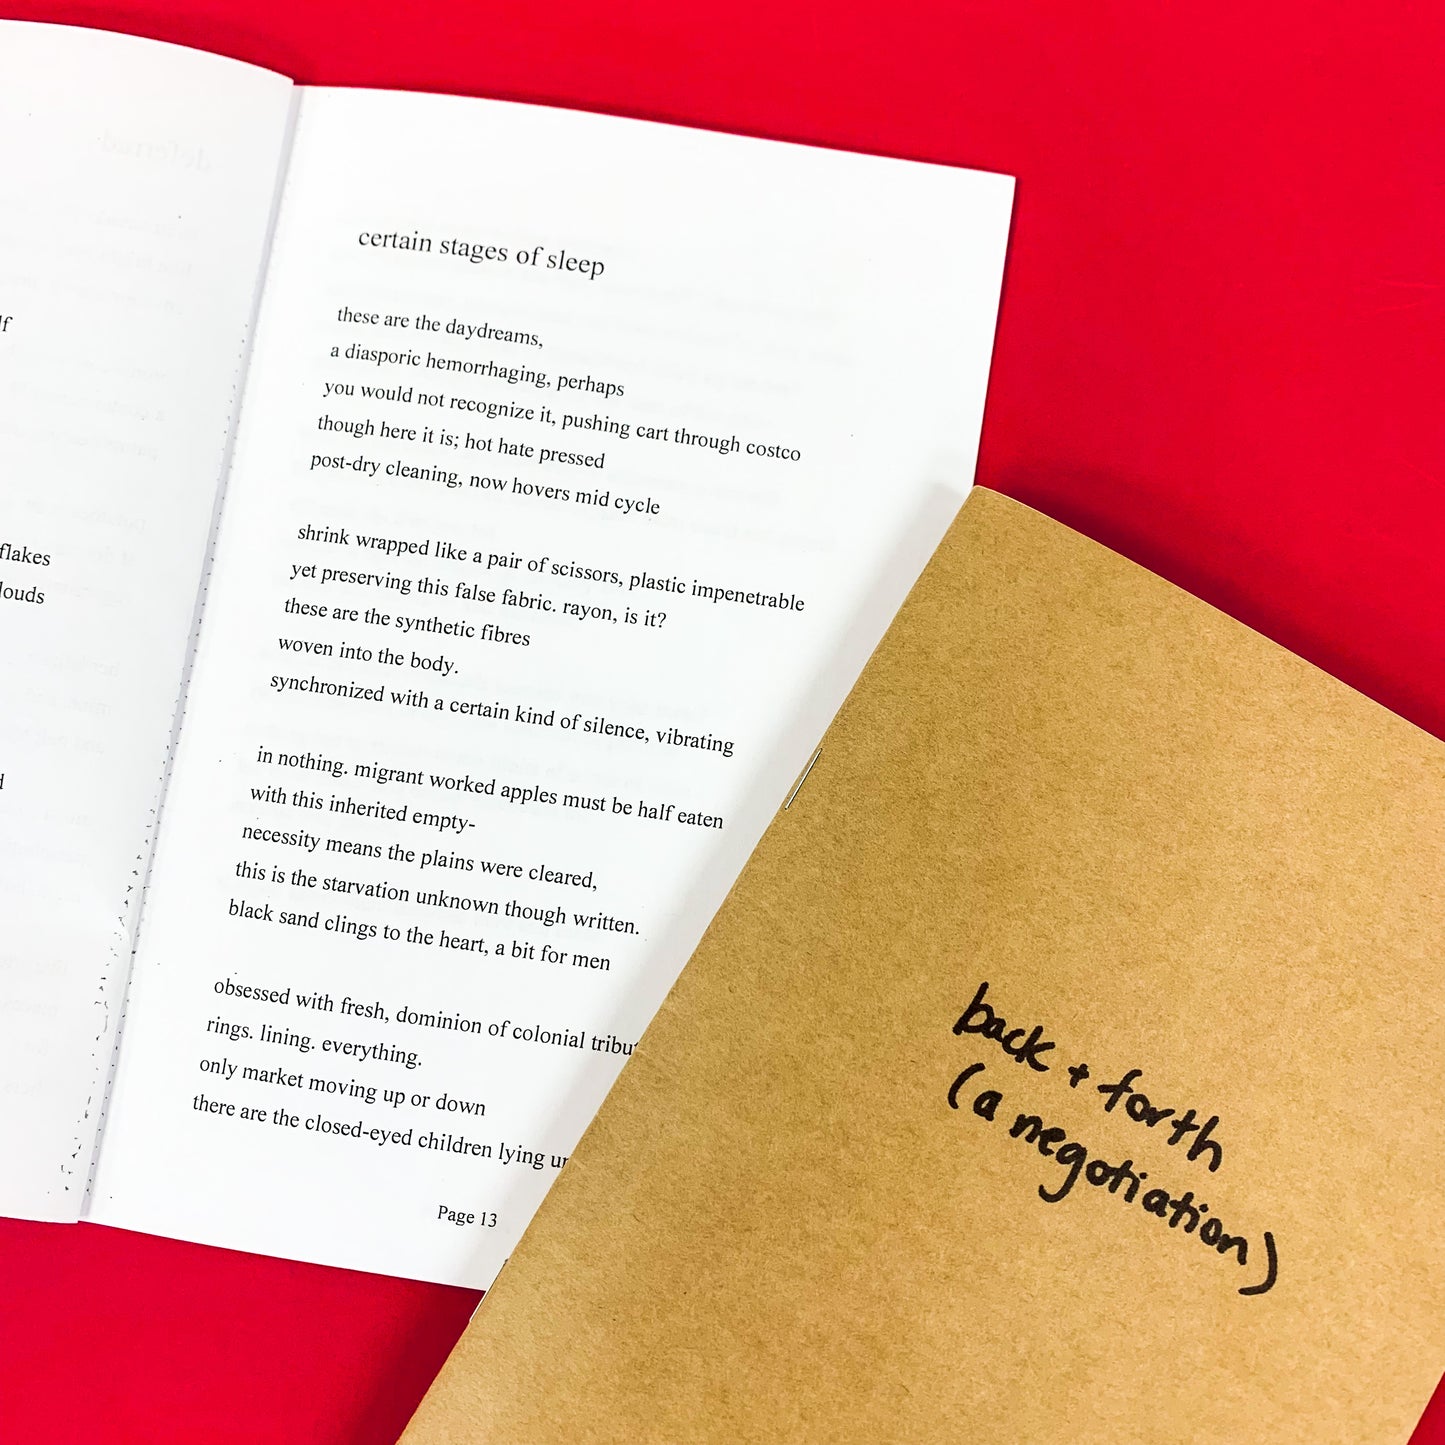 flakes
certain stages of sleep
these are the daydreams,
a diasporic hemorrhaging, perhaps
you would not recognize it, pushing cart through costco
though here it is; hot hate pressed
post-dry cleaning, now hovers mid cycle
shrink wrapped like a pair of scissors, plastic impenetrable
yet preserving this false fabric. rayon, is it?
these are the synthetic fibres
woven into the body.
synchronized with a certain kind of silence, vibrating
in nothing. migrant worked apples must be half eaten
with this inherited empty-
necessity means the plains were cleared,
this is the starvation unknown though written.
black sand clings to the heart, a bit for men
obsessed with fresh, dominion of colonial
rings. lining. everything.
only market moving up or down
there are the closed-eyed children lying
Page 13
back + forth
(a negotiation)